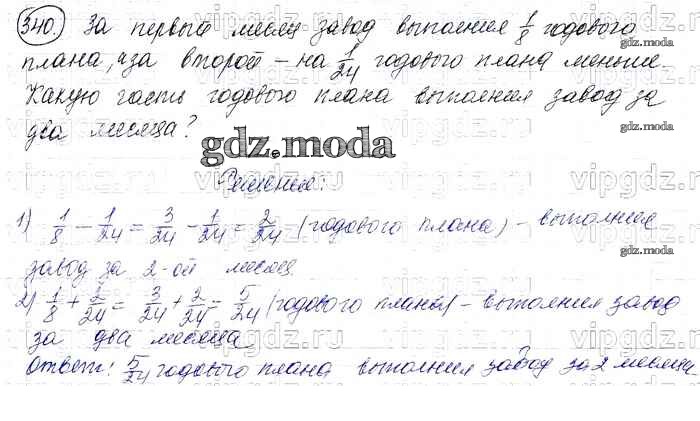 340. За первый месяц завод выполнил 1/8 годового
плана, а за второй – на 1/24 годового плана меньше.
Какую часть годового плана выполнил завод за
два месяца?
gdz.moda
Решение:
1) 1/8 – 1/24 = 3/24 – 1/24 = 2/24 (годового плана) – выполнил
завод за 2-ой месяц.
2) 1/8 + 2/24 = 3/24 + 2/24 = 5/24 (годового плана) – выполнил завод
за два месяца.
Ответ: 5/24 годового плана выполнил завод за 2 месяца.